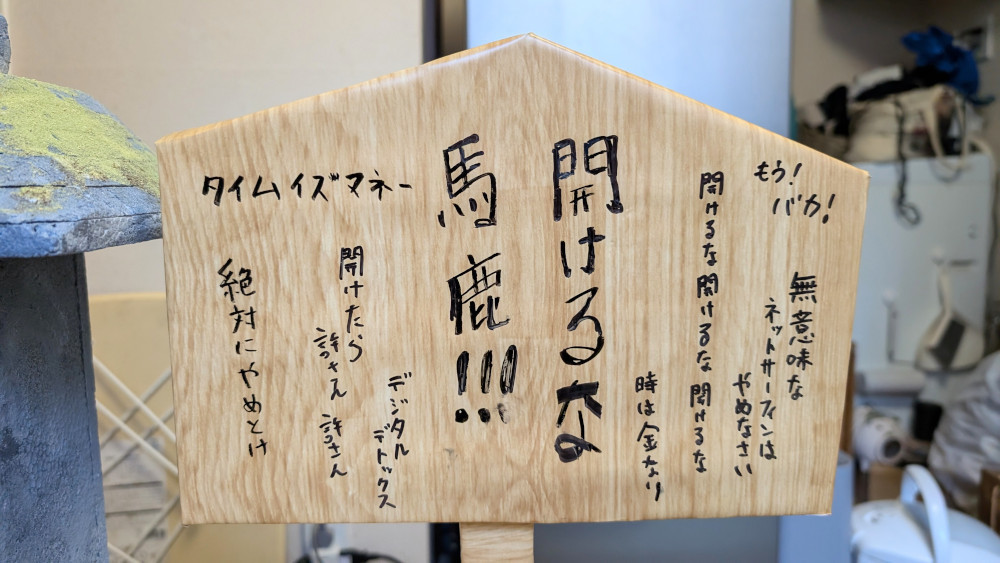 もう!
バカ!
無意味な
ネットサーフィンは
やめなさい
開けるな 開けるな 開けるな
時は金なり
開けるな
馬鹿!!!
デジタル
デトックス
開けたら
許さん 許さん
タイムイズマネー
絶対にやめとけ